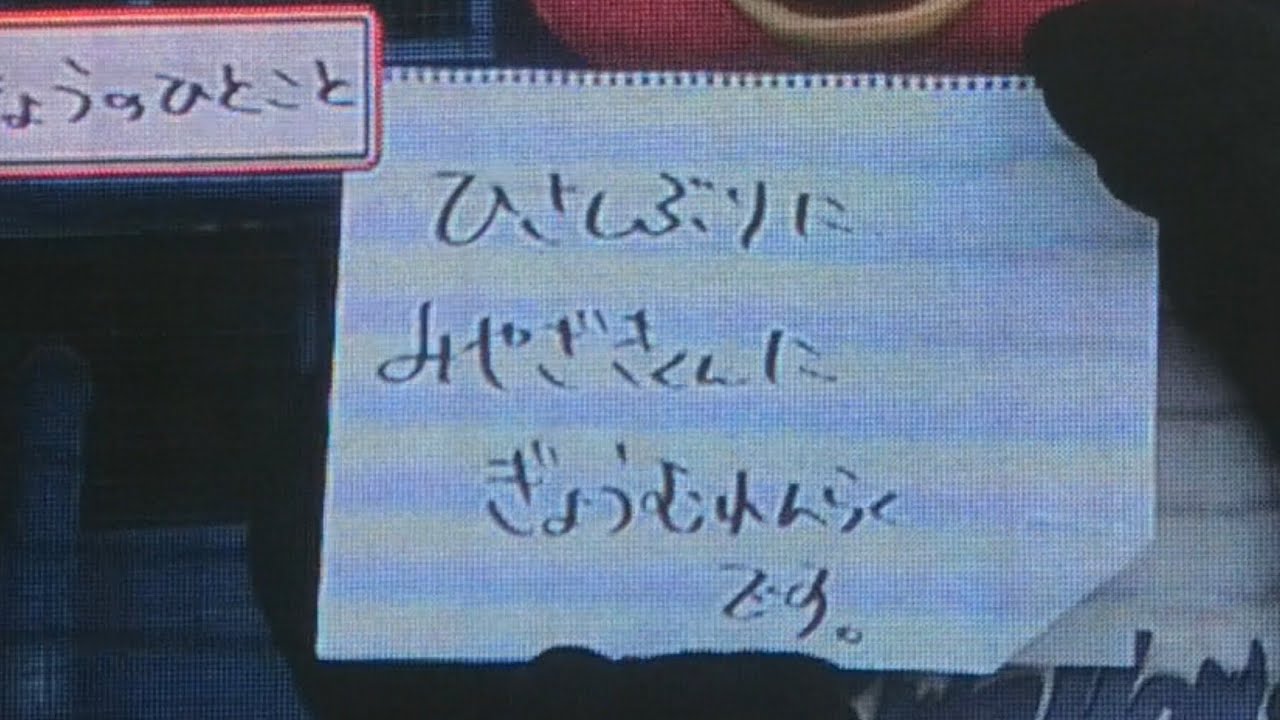 ょうのひとこと
ひさしぶりに
みやざきくんに
ぎょうむれんらく
です。